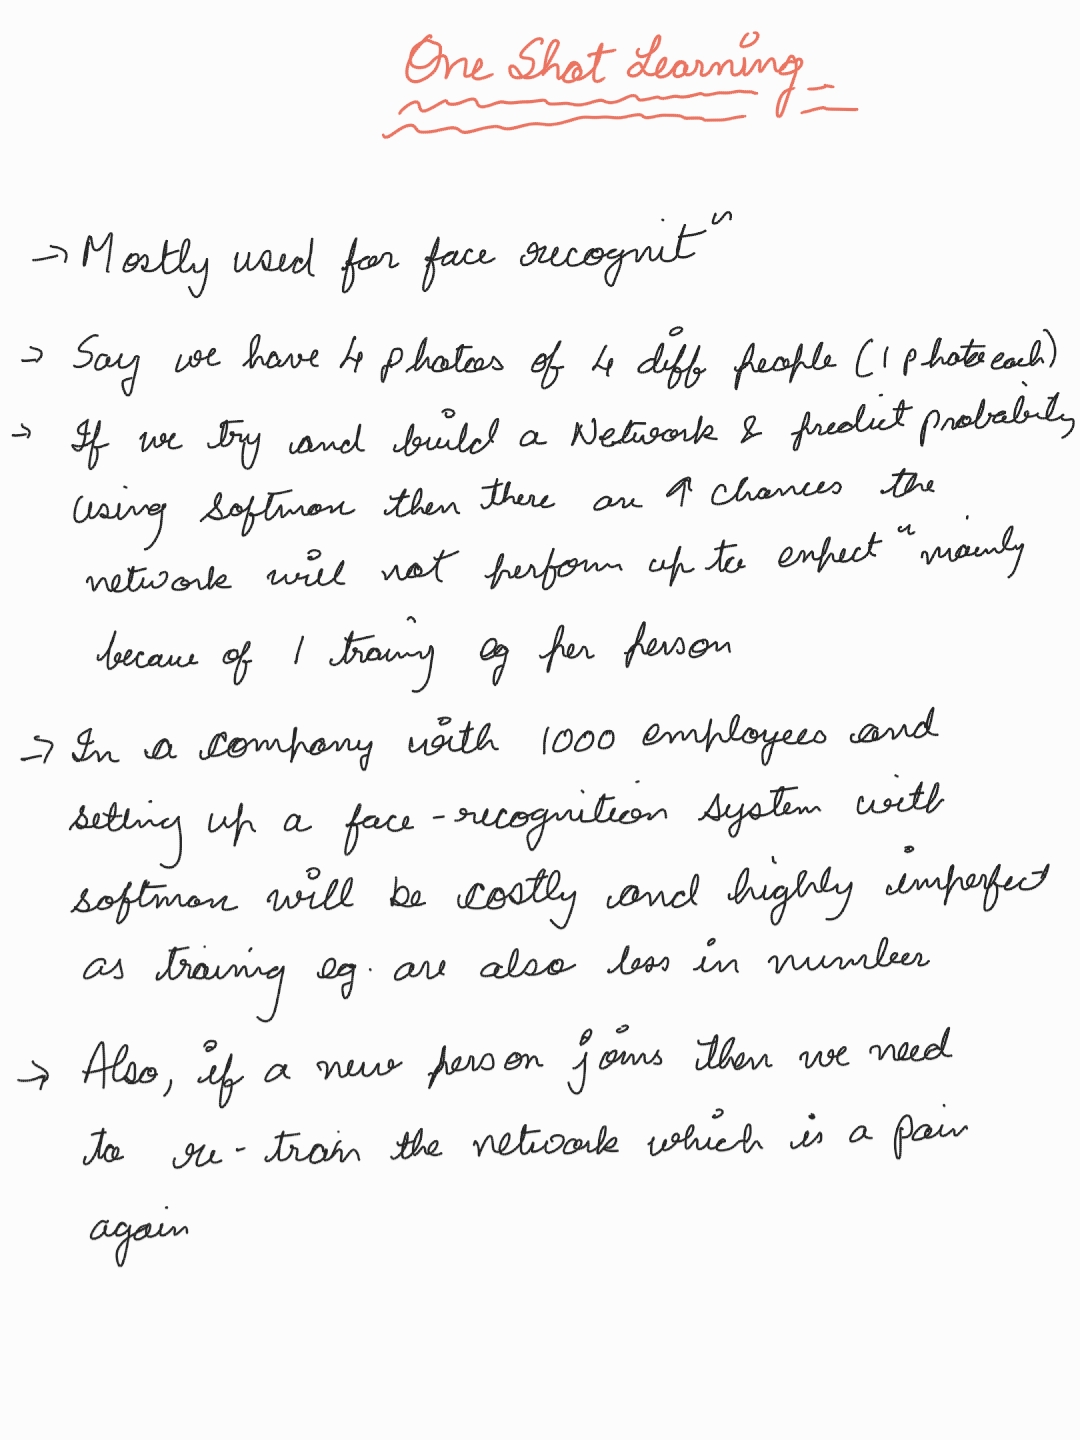 One Shot Learning
→ Mostly used for face recognitⁿ
→ Say we have 4 photos of 4 diff people (1 photo each)
→ If we try and build a Network & predict probability
using Softmax then there are ↑ chances the
network will not perform up to expectⁿ mainly
because of 1 training eg per person
→ In a company with 1000 employees and
setting up a face-recognition system with
softmax will be costly and highly imperfect
as training eg. are also less in number
→ Also, if a new person joins then we need
to re-train the network which is a pain
again